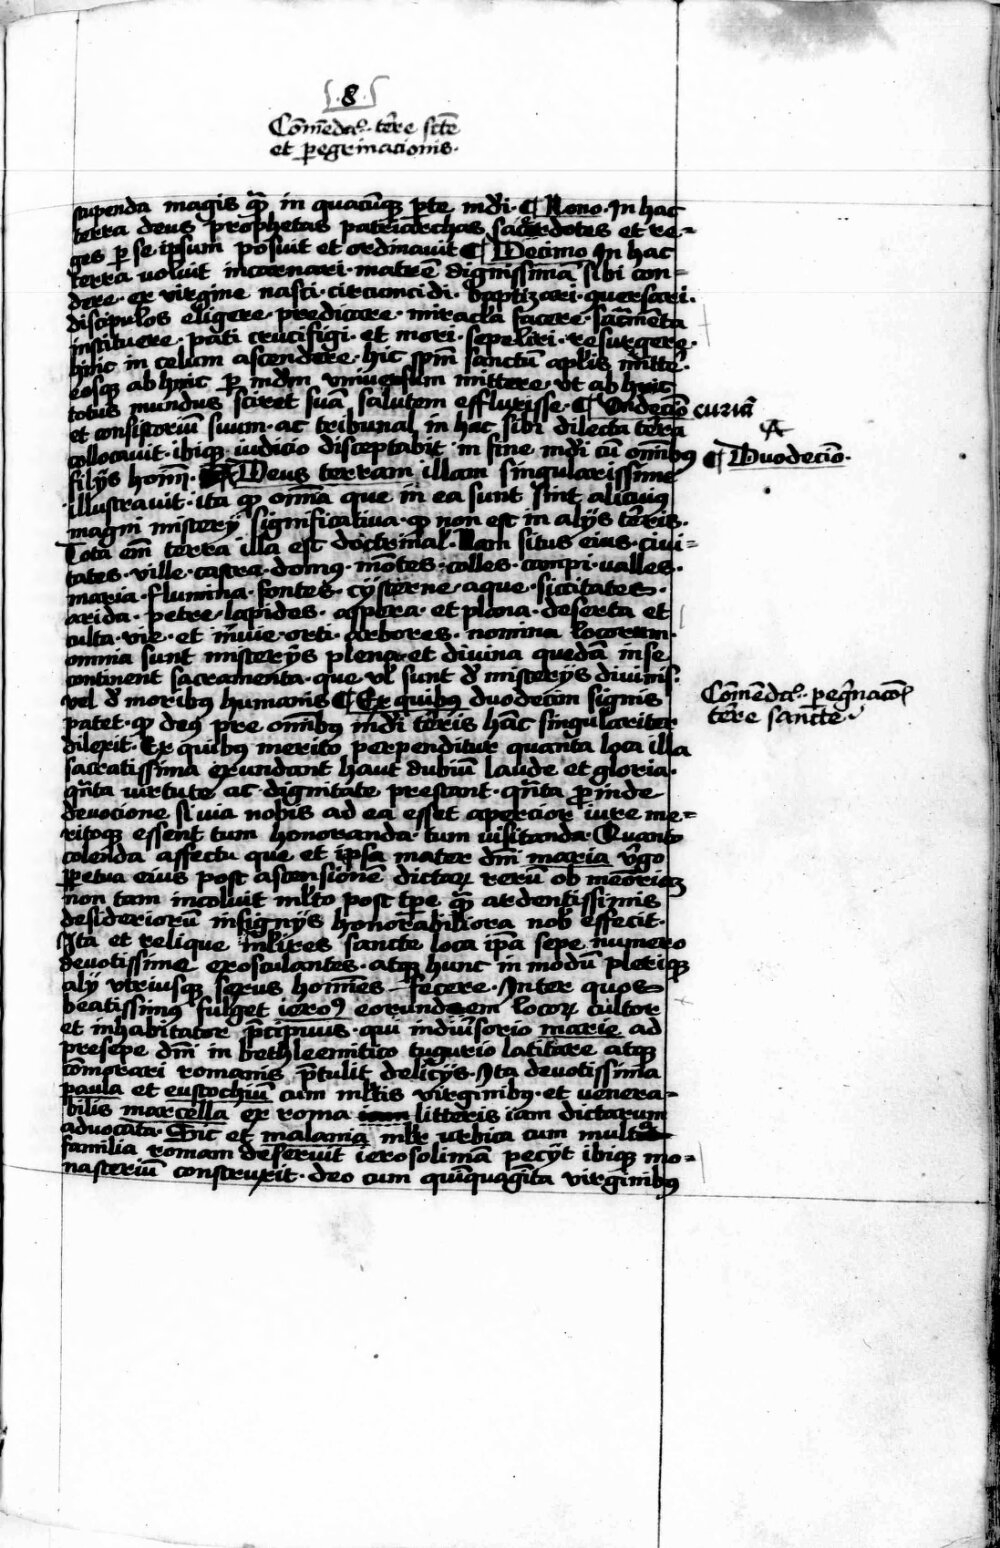 8
Cōmēdacō. tēre sctē
et pegrinacionis.
stupenda magis q̄ʒ in quacūqʒ pte mdi. ¶ Nono. In hac
terra deus prophetas patriarchas sacerdotes et re=
ges p se ipsum posuit et ordinauit ¶ Decimo In hac
terra voluit incarnari. matrē dignissimā sibi con=
dere. ex virgine nasci. circumcidi. baptizari. conuersari.
discipulos eligere. predicare. miracla facere. sacmēta
instituere. pati crucifigi. et mori. sepeliri. resurgere.
hinc in celum ascendere. hic spm sanctum aplis mitte.
eosqʒ ab hinc p mdm vniuersum mittere. vt ab hinc
totus mundus sciret suā salutem effluxisse. ¶ Vndecīo curiā
et consistoriū suum. ac tribunal in hac sibi dilecta terra
collocauit. ibiqʒ iudicio disceptabit in fine mdi cū omībus ¶ Duodecīo.
filijs homī. Deus terram illam singularissime
illustrauit. ita qp omnia que in ea sunt sint alicuius
magni misterij significatiua. qp non est in alijs tēris.
Tota em terra illa est doctrinal. Nam situs eius. ciui=
tates. ville. castra. domus. mōtes. colles. campi. valles.
maria. flumina. fontes. cysterne. aque. siccitates.
arida. petre. lapides. aspera. et plana. deserta et
culta. vie. et inuie. orti. arbores. nomina locorum.
omnia sunt misterijs plena. et diuina quedā in se
continent sacramenta. que vl sunt d misterijs diuinis.
vel d moribus humanis ¶ Ex quibus duodecim signis
patet. qp deus pre omībus mdi tēris hāc singulariter
dilexit. Ex quibus merito perpenditur quanta loca illa
Cōmēdacō. pegnacōī
tēre sancte.
sacratissima exundant haut dubiū laude et gloria.
qnta virtute ac dignitate prestant. qnta proinde
deuocione si via nobis ad ea esset apercior iure me=
ritoqʒ essent tum honoranda. tum visitanda. Quanto
colenda affectu que et ipsa mater dni maria v̄go
ppetua eius post ascensionē dictaꝝ rerū ob memoriaʒ
non tam incoluit mlto post tpe q̄ʒ ardentissimis
desideriorū insignijs honorabiliora nob effecit.
Ita et relique mlieres sancte loca ipa sepe numero
deuotissime exosculantes. atqʒ hunc in modū pleriqʒ
alij vtriusqʒ sexus homines fecere. Inter quos
beatissimus fulget ieroꝰ eorundem locoꝝ cultor
et inhabitator pcipuus. qui in diuersorio marie ad
presepe dni in bethleemitico tugurio latitare atqʒ
cōmorari romanis ptulit delicijs. Ita deuotissima
paula et eustochiū cum mltis virginibus. et venera=
bilis marcella ex roma litteris iam dictarum
aduocata. Sic et malania mlier vrbica cum multa
familia romam deseruit ierosolimā pecijt ibiqʒ mo=
nasteriū construxit. deo cum quinquaginta virginibus